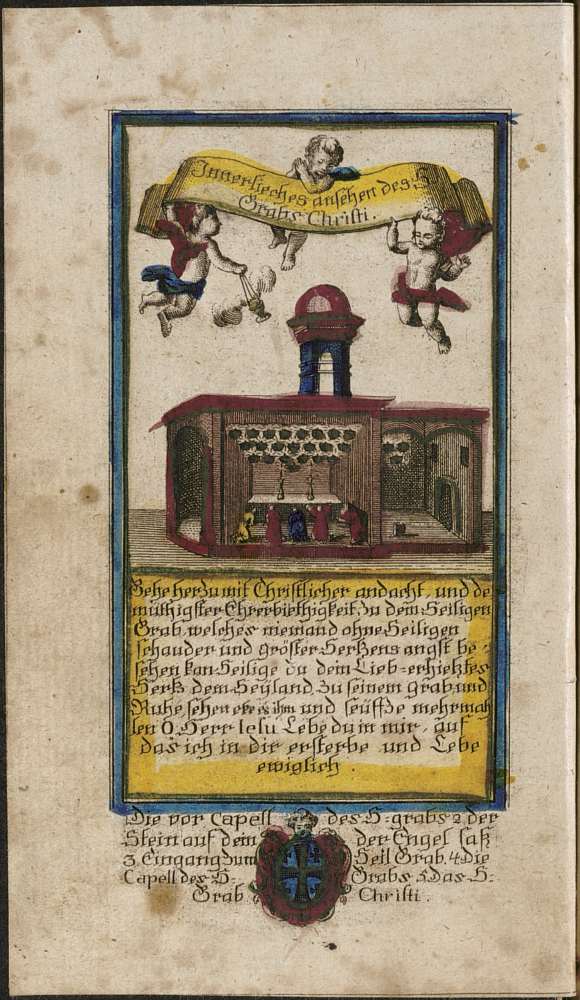 Innerliches ansehen des H
Grabs Christi.
Gehe herzu mit Christlicher andacht, und de
müthigster Ehrerbiethigkeit, zu dem Heiligen
Grab, welches niemand ohne Heiligen
schauder und gröster Hertzens angst be=
sehen kan Heilige du dein Lieb-erhietztes
Hertz dem Heyland, zu seinem grab und
Ruhe sehen und seüffze mehrmah
len O Herr Iesu Lebe du in mir, auf
das ich in dir ersterbe und Lebe
ewiglich
Die vor Capell des H= grabs 2 der
Stein auf dem der Engel saß
3. Eingang zum Heil Grab. 4 Die
Capell des H= Grabs 5 Das H=
Grab Christi.